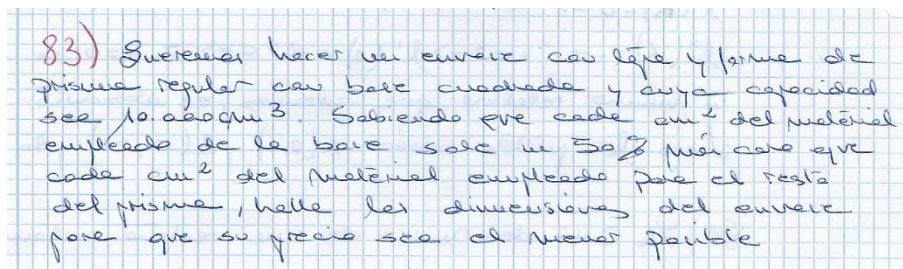 83) Queremos hacer un envase con tapa y forma de
prisma regular con base cuadrada y cuya capacidad
sea 10.000 cm³. Sabiendo que cada cm² del material
empleado de la base sale un 50% más caro que
cada cm² del material empleado para el resto
del prisma, halle las dimensiones del envase
para que su precio sea el menor posible